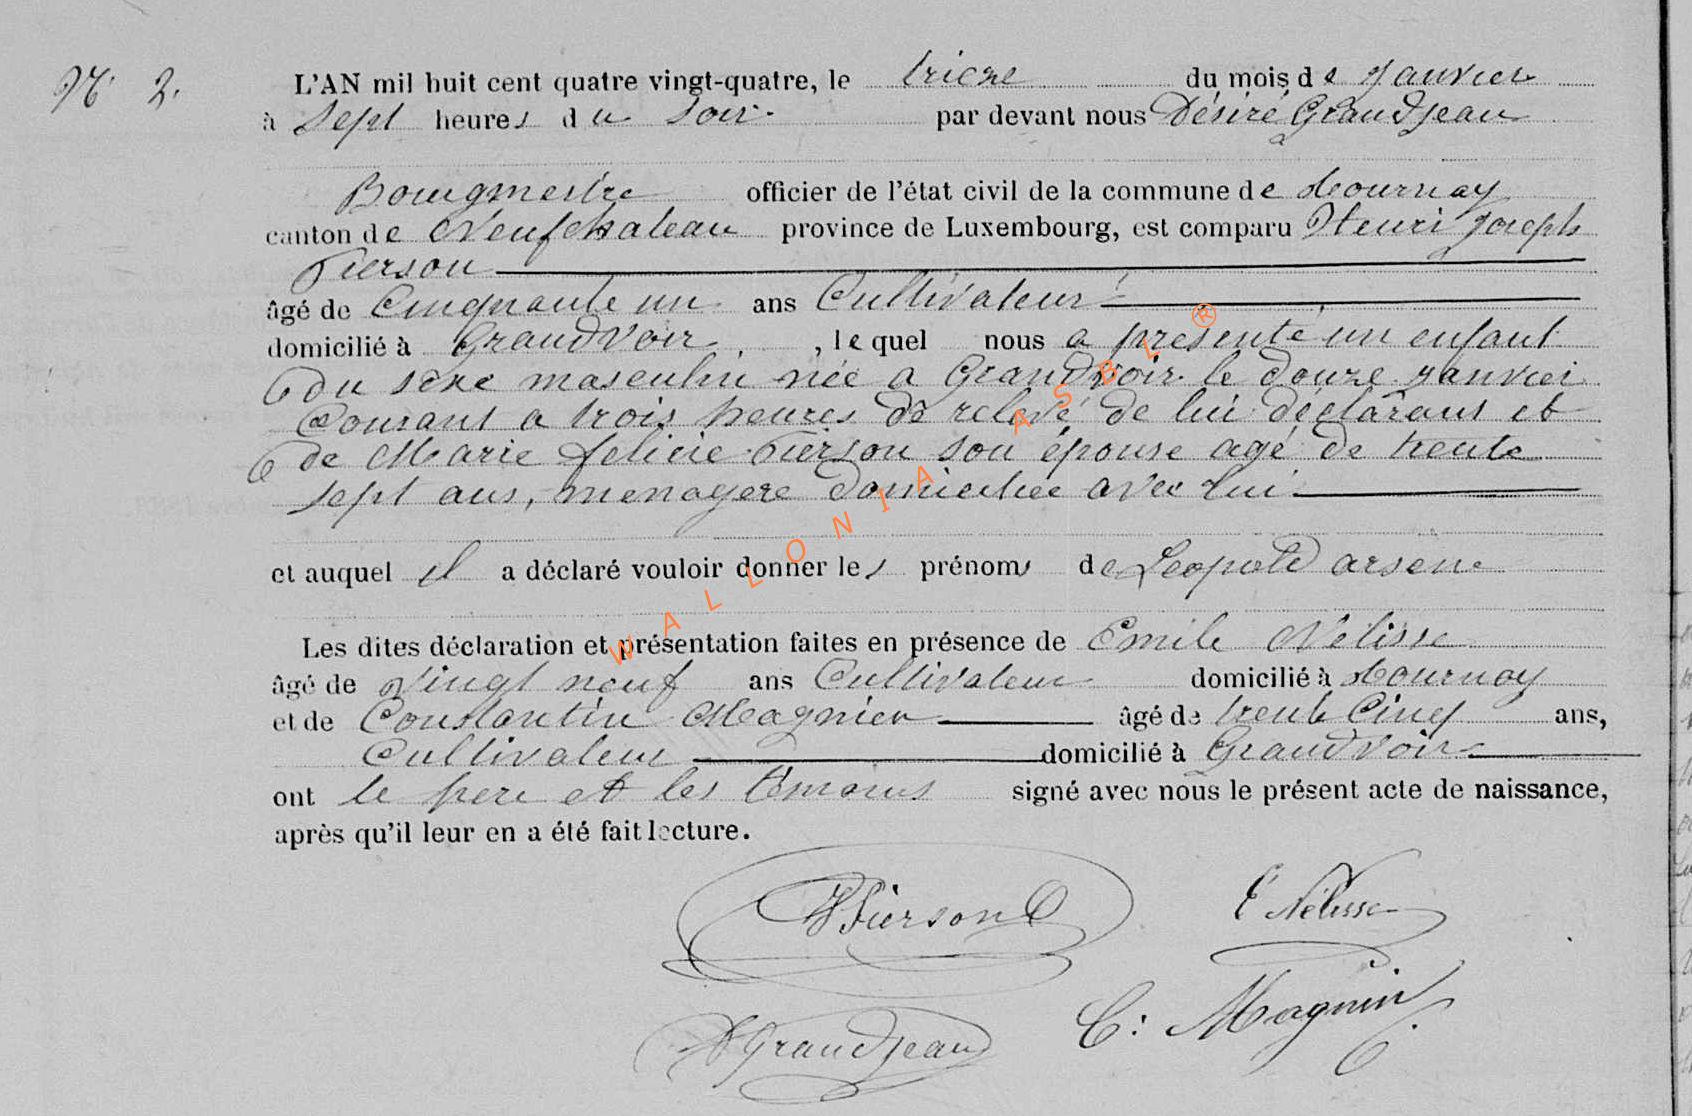 N° 2.
L'AN mil huit cent quatre vingt-quatre, le treize du mois de Janvier
à Sept heures du Soir. par devant nous Désiré Grandjean
Bourgmestre officier de l'état civil de la commune de Tournay
canton de Neufchateau province de Luxembourg, est comparu Henri Joseph
Pierson
âgé de Cinquante un ans Cultivateur
domicilié à Grandvoir, le quel nous a présenté un enfant
du sexe masculin née a Grandvoir le douze janvier
Courant a trois heures de relevé de lui déclarant et
de Marie félicie Pierson son épouse agé de trente
sept ans, menagere domiciliée avec lui
et auquel il a déclaré vouloir donner les prénoms de Leopold arsene
Les dites déclaration et présentation faites en présence de Emile Nélisse
âgé de Vingt neuf ans Cultivateur domicilié à Tournay
et de Constantin Magnien âgé de trente Cinq ans,
Cultivateur domicilié à Grandvoir
ont le pere et les témoins signé avec nous le présent acte de naissance,
après qu'il leur en a été fait lecture.
HPierson E Nélisse
DGrandjean C: Magnin
WALLONIA ASBL ®